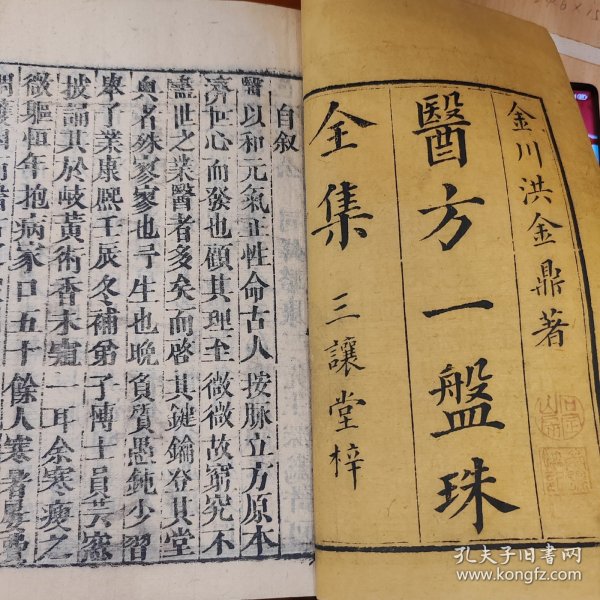 金川洪金鼎著
醫方一盤珠
全集 三讓堂梓
自叙
醫以和元氣正性命古人按脉立方原本
濟世心而發也顧其理至微微故窮究不
盡世之業醫者多矣而啓其鍵鑰登其堂
奥者殊寥寥也予生也晚負質愚鈍少習
舉子業康熙壬辰冬補弟子博士員芸窓
披論其於岐黃術杳未窺一耳余寒瘦之
微軀恒年抱病家口五十餘人寒暑
孔夫子旧书网
www.kongfz.com